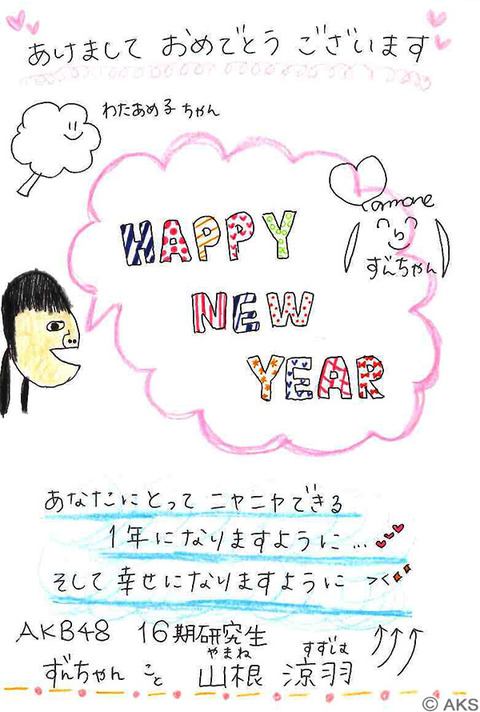 あけまして おめでとう ございます
わたあめ子ちゃん
HAPPY
NEW
YEAR
ずんちゃん
あなたにとって ニヤニヤできる
1年になりますように…
そして 幸せになりますように
AKB48 16期研究生
やまね すずは
ずんちゃん こと 山根 涼羽
© AKS